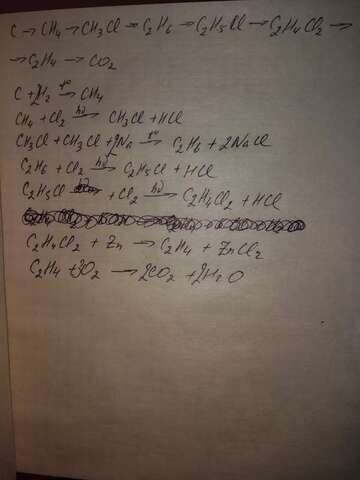 C → CH4 → CH3Cl → C2H6 → C2H5Cl → C2H4Cl2 →
→ C2H4 → CO2
C + 2H2 →t° CH4
CH4 + Cl2 →hν CH3Cl + HCl
CH3Cl + CH3Cl + 2Na →t° C2H6 + 2NaCl
C2H6 + Cl2 →hν C2H5Cl + HCl
C2H5Cl + Cl2 →hν C2H4Cl2 + HCl
C2H4Cl2 + Zn → C2H4 + ZnCl2
C2H4 + 3O2 → 2CO2 + 2H2O